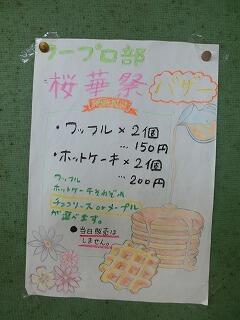 ワープロ部
桜華祭
バザー
・ワッフル×2個
…150円
・ホットケーキ×2個
…200円
ワッフル
ホットケーキそれぞれ
チョコソースorメープル
が選べます。
●当日販売は
しません。